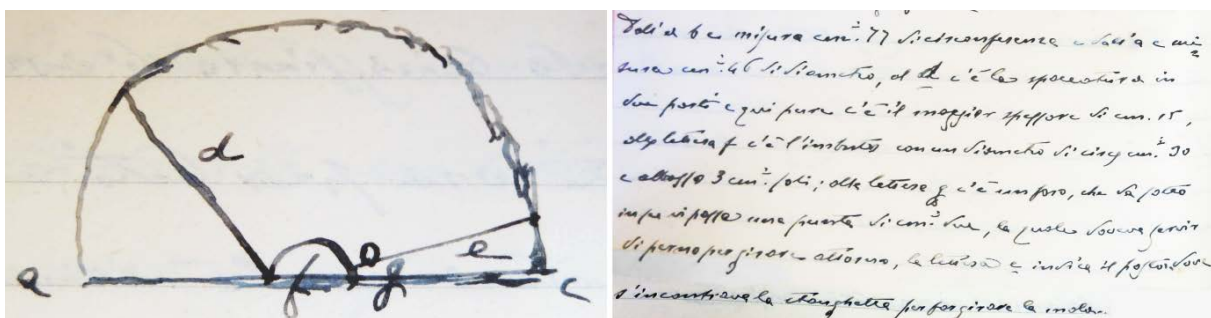 d
a
f
g
e
c
Dall'a b c misura cm.ⁱ 77 di circonferenza e dall'a c mi
sura cm.ⁱ 46 di diametro, al d c'è la spaccatura in
due parti e qui pure c'è il maggior spessore di cm. 15,
alla lettera f c'è l'imbuto con un diametro di circa cm.ⁱ 30
e alto 3 cm.ⁱ soli; alla lettera g c'è un foro, che da sotto
in su vi passa una punta di cm.ⁱ due, la quale doveva servir
di perno per girare attorno, la lettera e indica il posto dove
s'incontrava la stanghetta per far girare la mola.